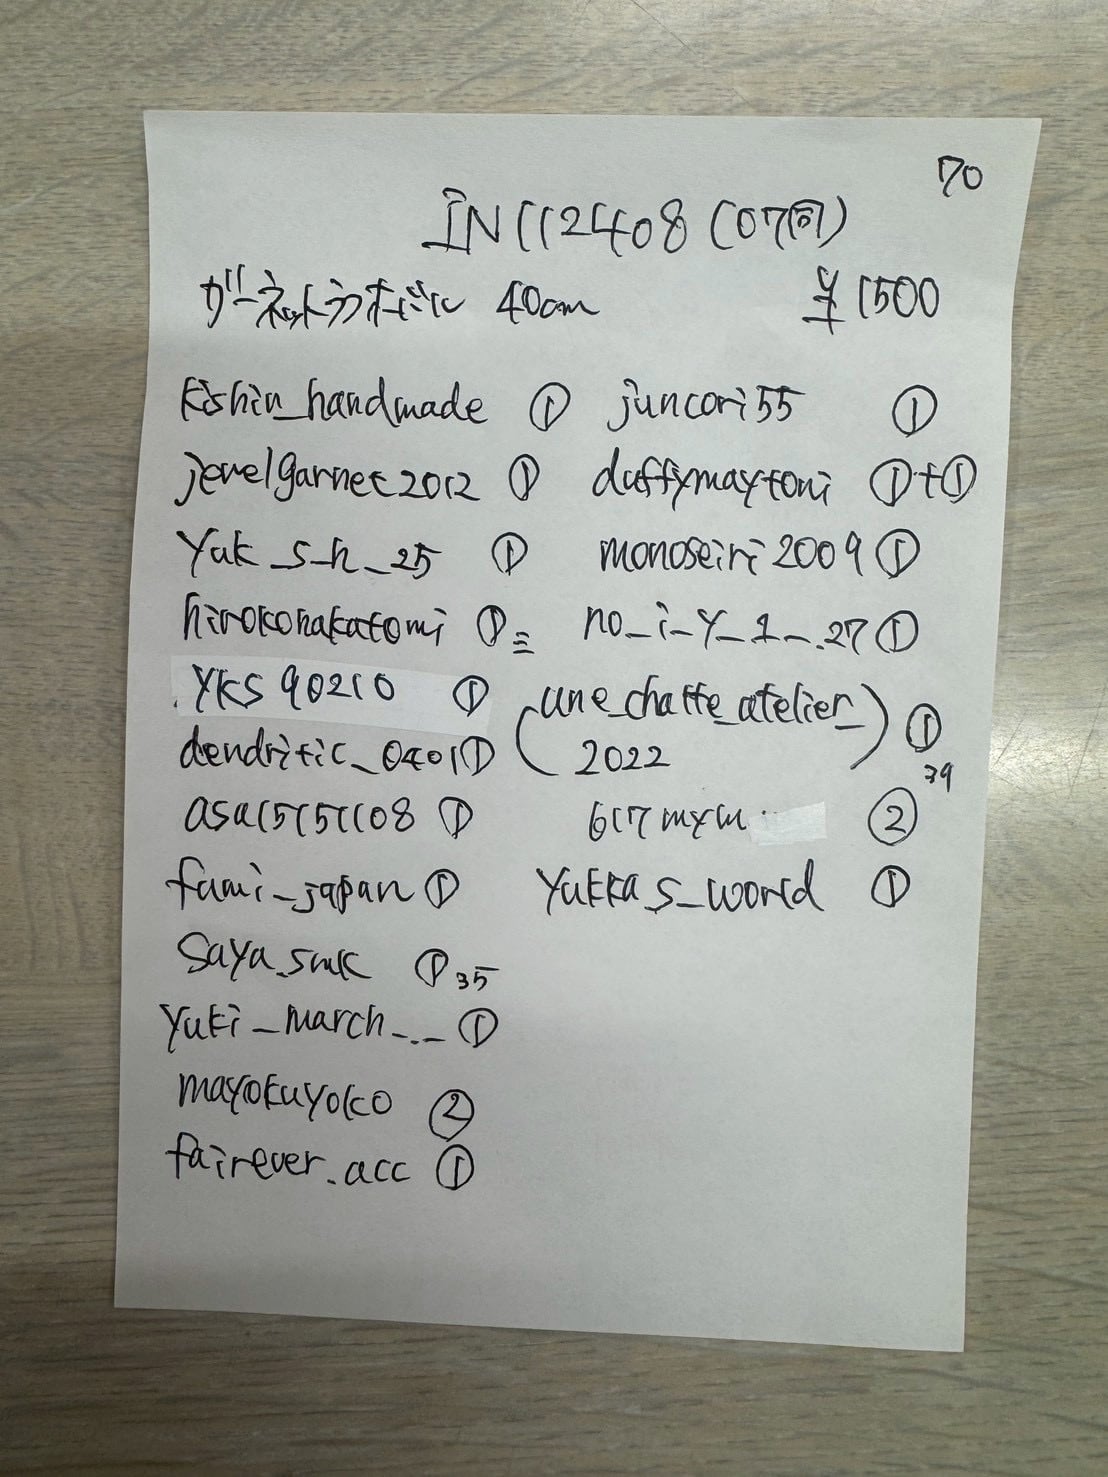 70
IN112408 (07回)
ガーネットラフボール 40cm ¥1500
kishin_handmade ① juncori55 ①
jewelgarnet2012 ① duffymaytoni ①+①
yuk_s_h_25 ① monoseiri2009 ①
hirokonakatomi ① 三 no_i_y_1_.27 ①
YKS90210 ① (une_chatte_atelier_2022) ① 39
dendritic_0401 ①
asa15151108 ① 617mym ②
fumi_japan ① yukkas_world ①
saya.smk ① 35
yuki_march_._ ①
mayokuyoko ②
fairever.acc ①